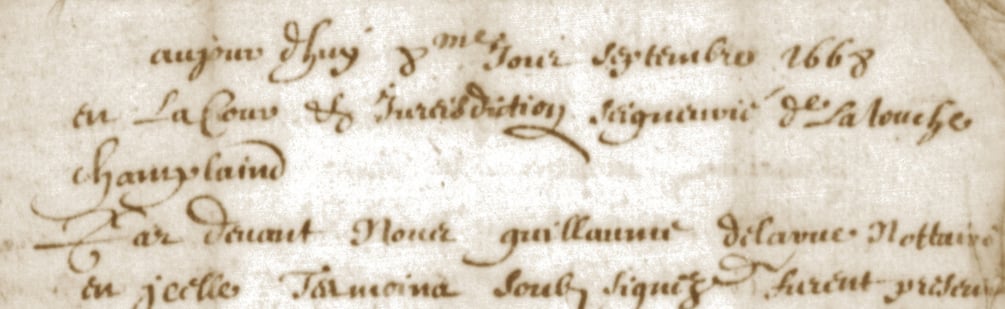 aujour dhuy 8me Jour septembre 1668
en La Cour & Jurisdiction seigneurie de La touche
champlaind
Par devant Nous guillaume delarue Nottaire
en jcelle Tesmoins soubz signez furent presen